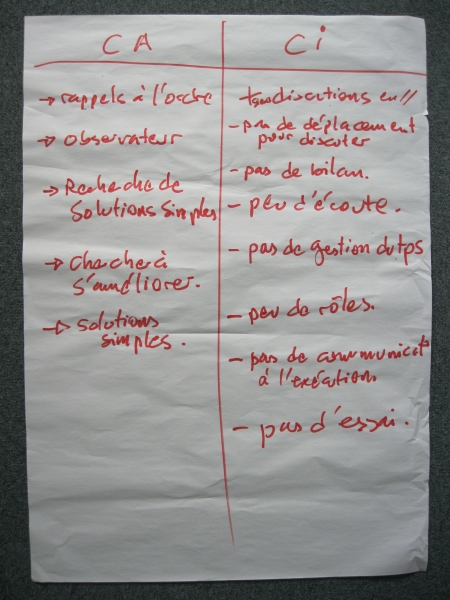 CA
Ci
→ rappels à l'ordre
→ observateur
→ Recheche de
solutions simples
→ Checher à
s'améliorer.
→ solutions
simples.
discutions en //
- pas de déplacement
pour discuter
- pas de bilan.
- peu d'écoute.
- pas de gestion du tps
- peu de rôles.
- pas de communicat°
à l'exécution
- pas d'essai.